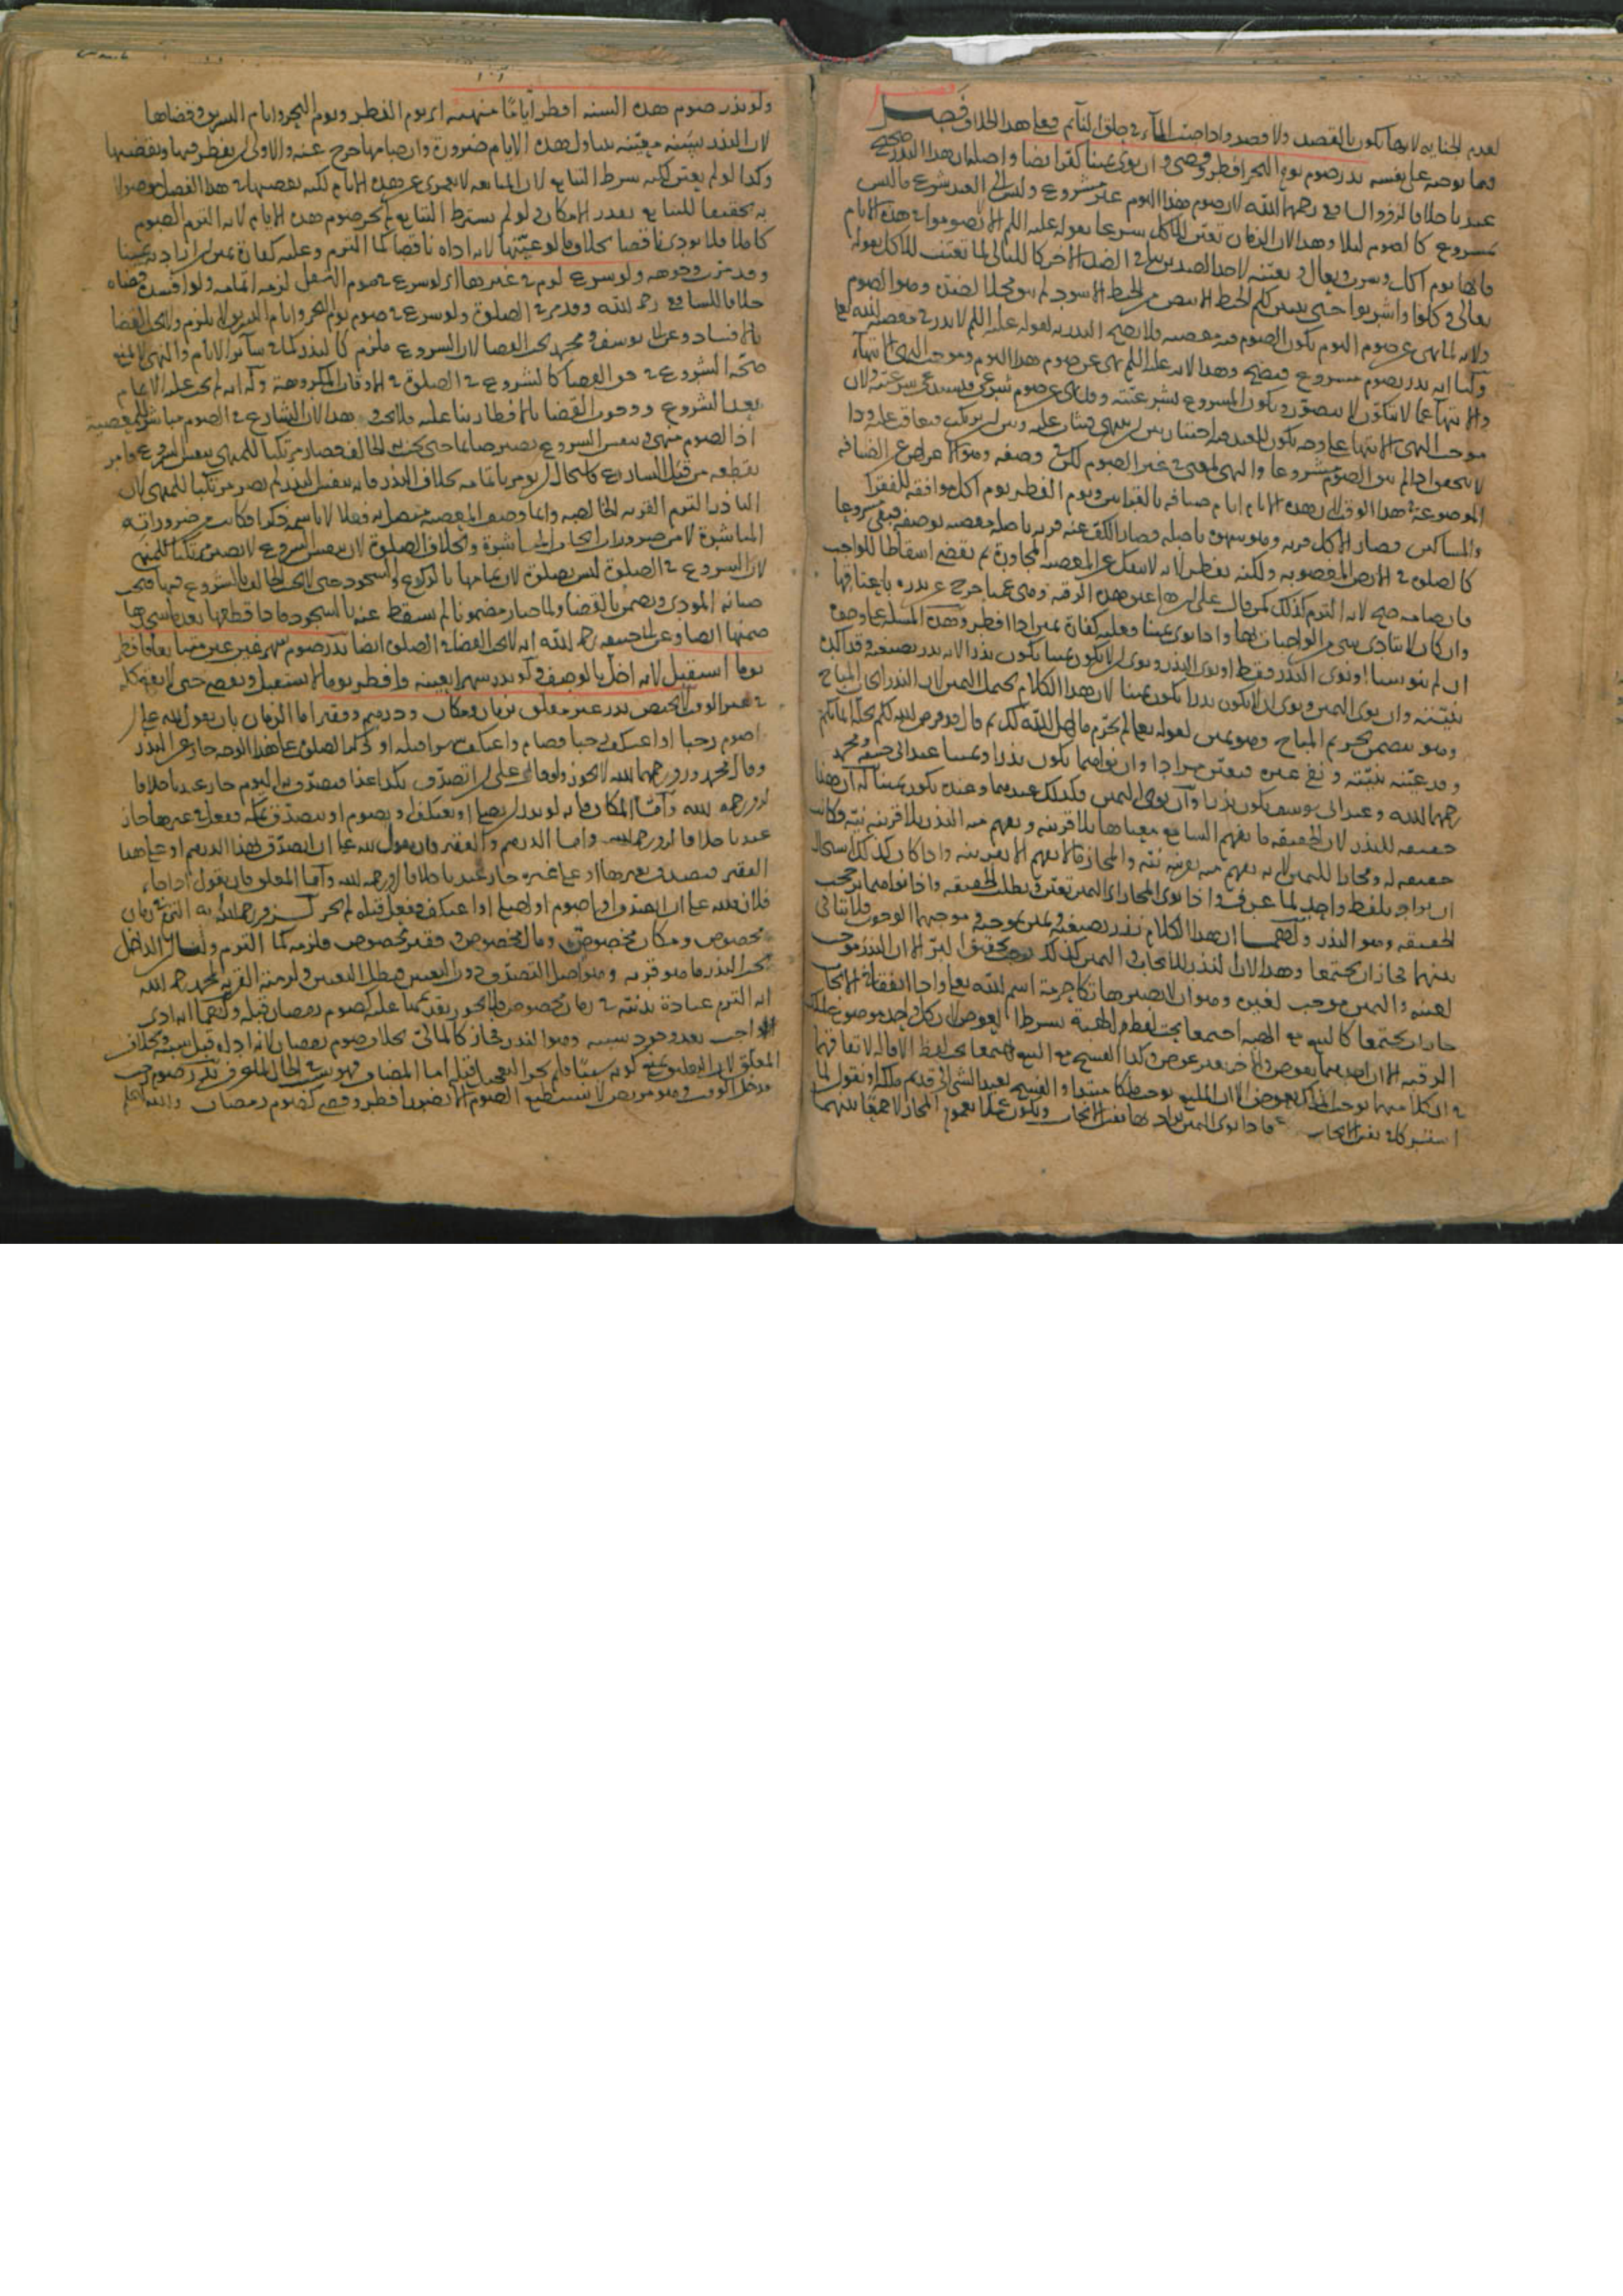 لعدم الجناية لانها تكون بالقصد ولا قصد واذا صب الماء في حلق النائم فعلى هذا الخلاف فصل
فيما يوجبه على نفسه نذر صوم يوم النحر افطر وقضى وان نوى يمينا كفر ايضا واصله ان هذا النذر صحيح
عندنا خلافا لزفر والشافعي رحمهما الله لان صوم هذا اليوم غير مشروع وليس الى العبد شرع ما ليس
بمشروع كالصوم ليلا وهذا لان الزمان تعين للاكل شرعا بقوله عليه السلم الا لا تصوموا في هذه الايام
فانها يوم اكل وشرب وبعال وتعينه لاحد الضدين ينفي الضد الاخر كالليالي لما تعينت للاكل بقوله
تعالى وكلوا واشربوا حتى يتبين لكم الخيط الابيض من الخيط الاسود لم يبق محلا لضده وهو الصوم
ولانه لما نهى عن صوم اليوم يكون الصوم فيه معصية فلا يصح النذر به لقوله عليه السلم لا نذر في معصية الله تعالى
ولنا انه نذر بصوم مشروع فيصح وهذا لانه عليه السلم نهى عن صوم هذا اليوم وموجب النهي الانتهاء
والانتهاء عما لا يتكون لا يتصور ويكون المشروع
موجب النهي الانتهاء على وجه يكون للعبد فيه اختيار بين ان ينتهي فيثاب عليه وبين ان يرتكب فيعاقب عليه وذا
لا يتحقق اذا لم يبق الصوم مشروعا والنهي لمعنى في غير الصوم لكن في وصفه وهو الاعراض عن الضيافة
الموضوعة في هذا الوقت لان هذه الايام ايام ضيافة بالقرابين ويوم الفطر يوم اكل موافقة للفقراء
والمساكين فصار الاكل قربة وهو شهوة باصله وصار الكف عنه قربة باصله معصية بوصفه فبقي مشروعا
كالصلوة في الارض المغصوبة ولكنه يفطر لانه لا ينفك عن المعصية المجاورة ثم يقضي اسقاطا للواجب
فان صامه صح لانه التزم كذلك كمن قال لله علي ان اعتق هذه الرقبة وهي عمياء خرج عن نذره باعتاقها
وان كان لا يتادى شيء من الواجبات بها واذا نوى يمينا فعليه كفارة يمين اذا افطر وهذه المسئلة على وجوه
ان لم ينو شيئا او نوى النذر فقط او نوى النذر ونوى ان لا يكون يمينا يكون نذرا لانه نذر بصيغته وقد اكده
بنيته وان نوى اليمين ونوى ان لا يكون نذرا يكون يمينا لان هذا الكلام يحتمل اليمين لان النذر ايجاب المباح
وهو يتضمن تحريم المباح وهو يمين لقوله تعالى لم تحرم ما احل الله لك ثم قال قد فرض الله لكم تحلة ايمانكم
وقد عينه بنيته ونفى غيره فيتعين مرادا وان نواهما يكون نذرا ويمينا عند ابي حنيفة ومحمد
رحمهما الله وعند ابي يوسف يكون نذرا وان نوى اليمين فكذلك عندهما وعنده يكون يمينا له ان هذا
حقيقة للنذر لان الحقيقة ما يفهم السامع معناها بلا قرينة ويفهم منه النذر بلا قرينة نية فكانت
حقيقة له ومجازا لليمين لانه يفهم منه بقرينة نية والمجاز ما لا يفهم الا بقرينة واذا كان كذلك استحال
ان يرادا بلفظ واحد لما عرف واذا نوى المجاز اي اليمين تعين وبطلت الحقيقة واذا نواهما ترجحت
الحقيقة وهو النذر ولهما ان هذا الكلام نذر بصيغته يمين بموجبه وموجبهما الوجوب فلا تنافي
بينهما فجاز ان يجتمعا
جاز ان يجتمعا كالبيع مع الهبة اجتمعا تحت لفظ الهبة بشرط العوض
استتر كا في نفس الايجاب فاذا نوى اليمين يراد بها نفس الايجاب ويكون عملا بعموم المجاز لا جمعا بينهما
ولو نذر صوم هذه السنة افطر اياما منهية اي يوم الفطر ويوم النحر وايام التشريق وقضاها
لان النذر بسنة معينة يتناول هذه الايام ضرورة وان صامها خرج عنه والاولى ان يفطر فيها ويقضيها
وكذا لو لم يعين لكنه شرط التتابع لان المتابعة لا تعرى عن هذه الايام لكنه يقضيها في هذا الفصل موصولا
به تحقيقا للتتابع بقدر الامكان ولو لم يشترط التتابع لم يجز صوم هذه الايام لانه التزم الصوم
كاملا فلا يؤدى ناقصا بخلاف ما لو عينها لانه اداه ناقصا كما التزم وعليه كفارة يمين ان اراد به يمينا
وقد مرت وجوهه ولو شرع لوم في غيرها اي لو شرع في صوم النفل لزمه اتمامه ولو افسده قضاه
خلافا للشافعي رحمه الله وقد مر في الصلوة ولو شرع في صوم يوم النحر وايام التشريق لا يلزم ولا يجب القضاء
بالافساد وعن ابي يوسف ومحمد يجب القضاء لان الشروع ملزم كالنذر كما في سائر الايام والنهي لا يمنع
صحة الشروع في حق القضاء كالشروع في الصلوة في الاوقات المكروهة وله انه لم يجب عليه الاتمام
بعد الشروع ووجوب القضاء بالافطار بناء عليه فلا يجب وهذا لان الشارع في الصوم مباشر للمعصية
اذ الصوم منهي وبنفس الشروع يصير صائما حتى يحنث الحالف فصار مرتكبا للمنهي بنفس الشروع فامر
بقطعه من قبل الشارع فاستحال ان يؤمر باتمامه بخلاف النذر فانه بنفس النذر لم يصر مرتكبا للمنهي لان
الناذر التزم القربة الخالصة وانما وصف المعصية متصل به فعلا لا باسمه ذكرا فكانت من ضرورات
المباشرة لا من ضرورات ايجاب المباشرة وبخلاف الصلوة لان بنفس الشروع لا يصير مرتكبا للمنهي
لان الشروع في الصلوة ليس بصلوة لان تمامها بالركوع والسجود حتى لا يحنث الحالف بالشروع فيها فتجب
صيانة المؤدى ويضمن بالقضاء ولما صار مضمونا لم يسقط عنه بالسجود فاذا قطعها بعد ما سجد
ضمنها ايضا وعن ابي حنيفة رحمه الله انه لا يجب القضاء في الصلوة ايضا نذر صوم شهر غير عين متتابعا فافطر
يوما استقبل لانه اخل بالوصف ولو نذر شهرا بعينه وافطر يوما لا يستقبل ويقضي حتى لا يقع كله
في غير الوقت لا يختص نذر غير معلق بزمان ومكان ودرهم وفقير اما الزمان بان يقول لله علي ان
اصوم رجبا او اعتكف رجبا فصام واعتكف شهرا قبله او كما الصلوة على هذا الوجه جاز عن النذر
وقال محمد وزفر رحمهما الله لا يجوز ولو قال لله علي ان اتصدق بكذا غدا فتصدق به اليوم جاز عندنا خلافا
لزفر رحمه الله واما المكان فانه لو نذر ان يصلي او يعتكف او يصوم او يتصدق بمكة ففعل في غيرها جاز
عندنا خلافا لزفر رحمه الله واما الدرهم والفقير فان يقول لله علي ان اتصدق بهذا الدرهم او على هذا
الفقير فتصدق بغيرها او على غيره جاز عندنا خلافا لزفر رحمه الله واما المعلق فان يقول اذا جاء
فلان فلله علي ان اتصدق او اصوم او اصلي او اعتكف ففعل قبله لم يجز لزفر رحمه الله انه التزم في زمان
مخصوص ومكان مخصوص ومال مخصوص وفقير مخصوص فلزمه كما التزم ولنا ان الداخل
تحت النذر ما هو قربة وهو اصل التصدق دون التعيين فبطل التعيين ولزمته القربة لمحمد رحمه الله
انه التزم عبادة بدنية في زمان مخصوص فلا يجوز تقديمها عليه كصوم رمضان قبله ولهما انه ادى
الواجب بعد وجود سببه وهو النذر فجاز كالمالي بخلاف صوم رمضان لانه اداء قبل سببه وبخلاف
المعلق لان التعليق يمنع كونه سببا فلم يجز التعجيل قبله اما المضاف فهو سبب في الحال لما عرف نذر صوم رجب
فدخل الوقت وهو مريض لا يستطيع الصوم الا بضرر افطر وقضى كصوم رمضان والله اعلم